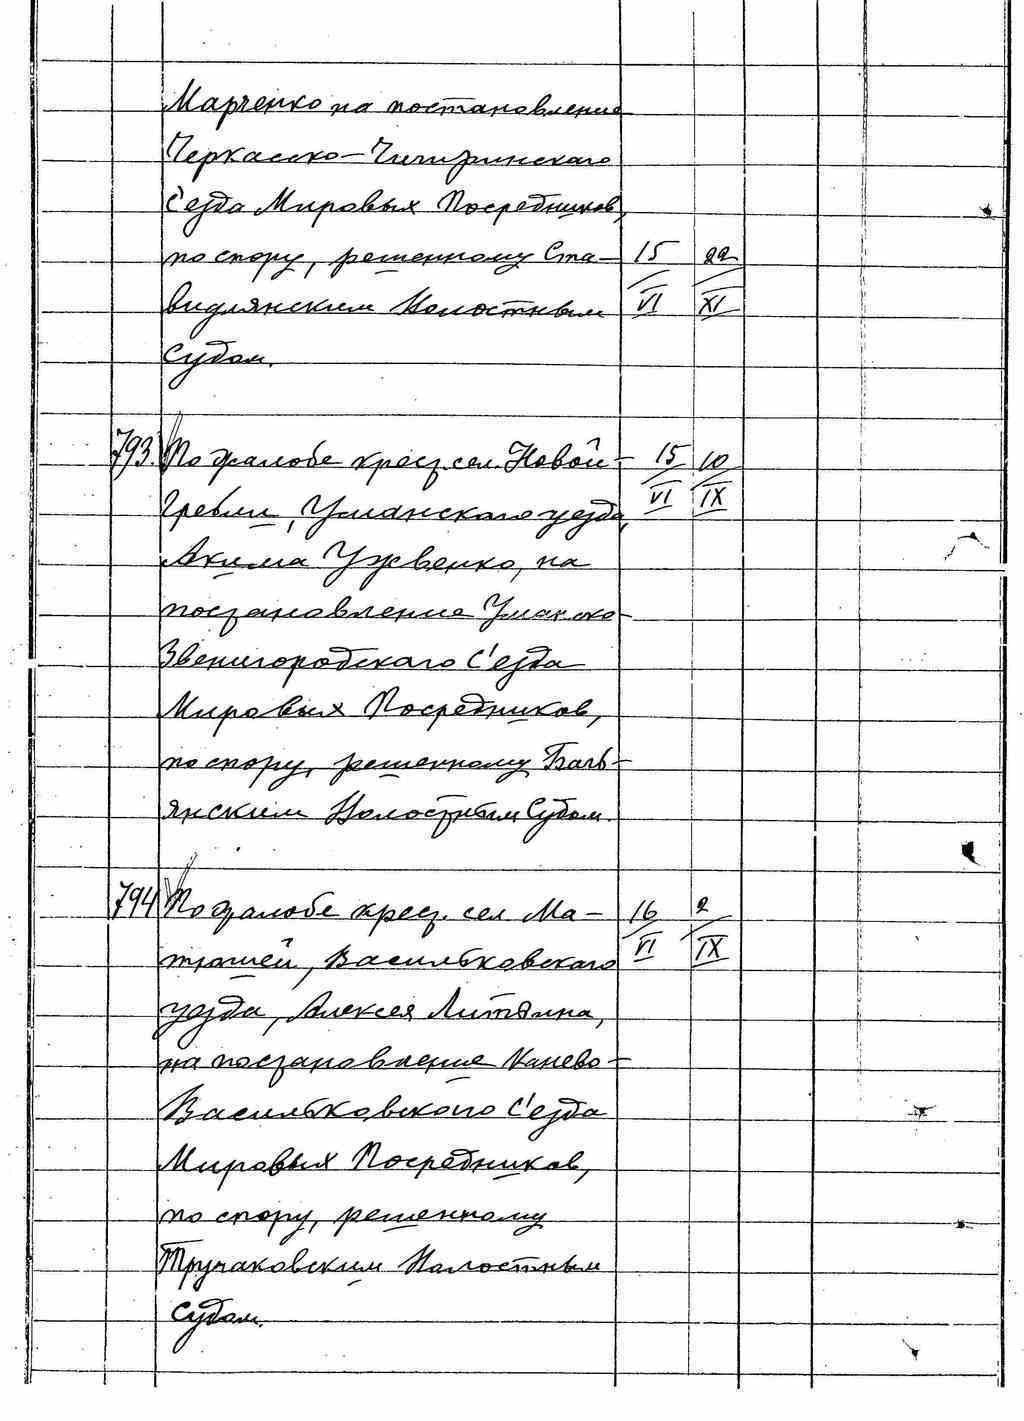 Марченко на постановление
Черкасско-Чигиринского
С'езда Мировых Посредников,
по спору, решенному Ста- 15 22
видлянским Волостным VI XI
Судом.
793. По жалобе крест. сел. Новой- 15 10
Гребли, Уманского уезда, VI IX
Акима Ужвенко, на
постановление Уманско-
Звенигородского С'езда
Мировых Посредников,
по спору, решенному
янским Волостным Судом.
794 По жалобе крест. сел. Ма- 16 2
тюшей, Васильковского VI IX
уезда, Алексея
на постановление Канево-
Васильковского С'езда
Мировых Посредников,
по спору, решенному
Волостным
Судом.